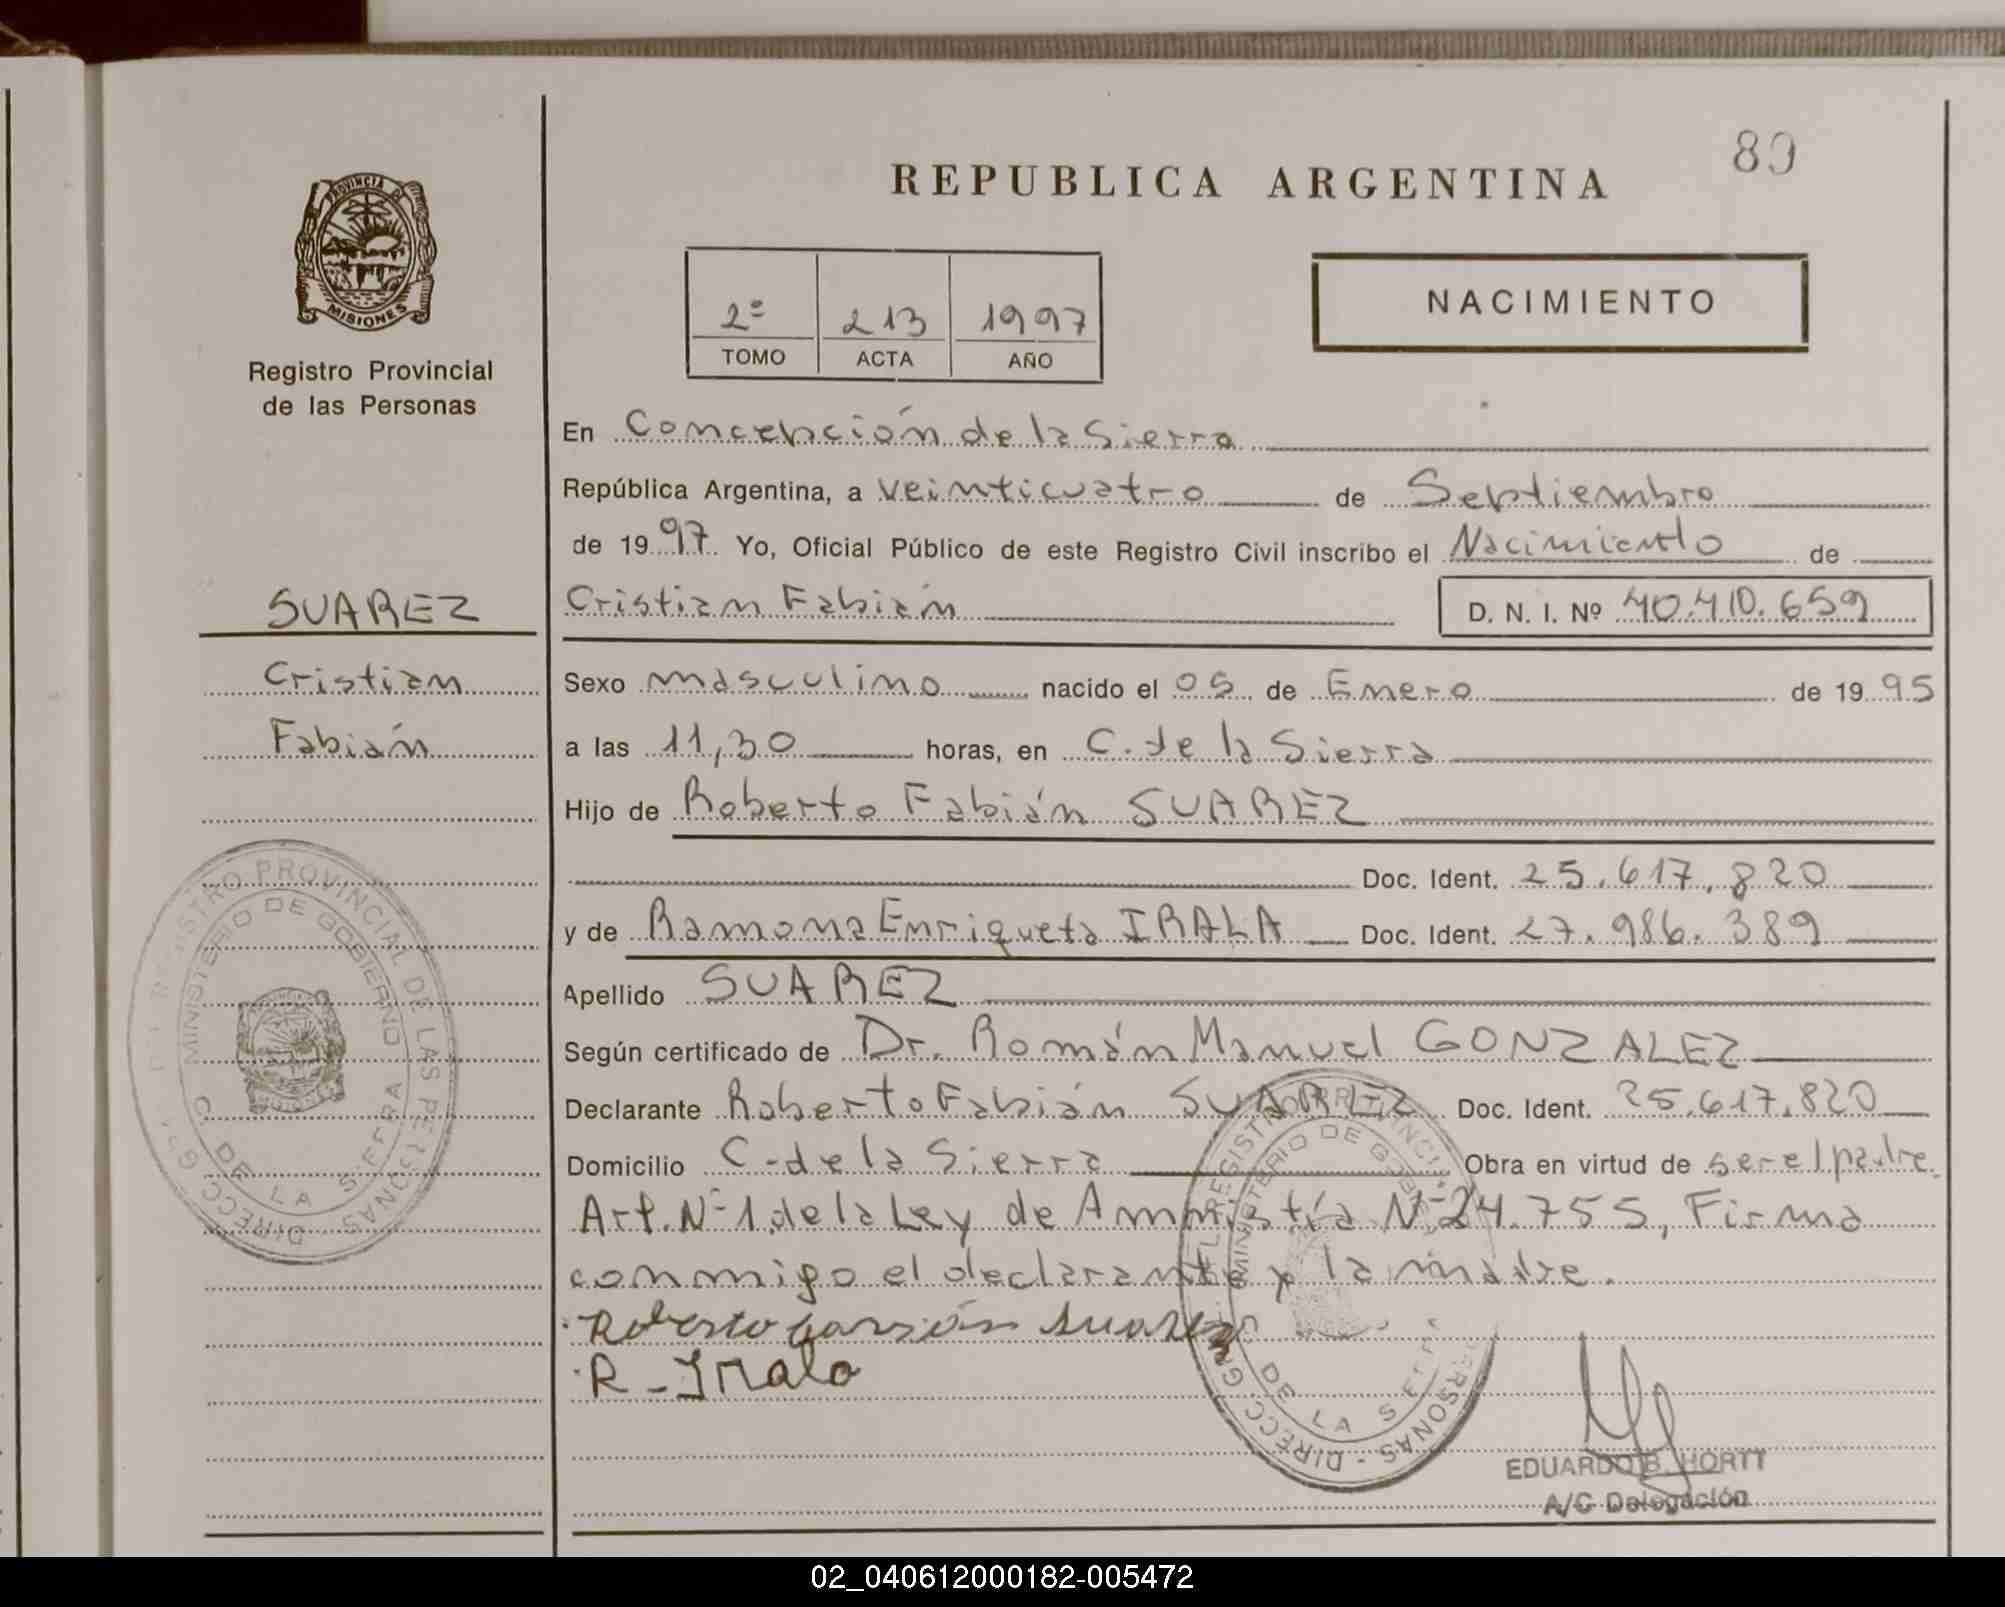 80
REPUBLICA ARGENTINA
PROVINCIA DE
MISIONES
Registro Provincial
de las Personas
2º 213 1997
TOMO ACTA AÑO
NACIMIENTO
En Concepción de la Sierra
República Argentina, a veinticuatro de Septiembre
de 1997 Yo, Oficial Público de este Registro Civil inscribo el Nacimiento de
SUAREZ
Cristian Fabián
Cristian Fabián D. N. I. Nº 40.410.659
Sexo masculino nacido el 05 de Enero de 1995
a las 11,30 horas, en C. de la Sierra
Hijo de Roberto Fabián SUAREZ
Doc. Ident. 25.617.820
y de Ramona Enriqueta IRALA Doc. Ident. 27.986.389
Apellido SUAREZ
Según certificado de Dr. Román Manuel GONZALEZ
Declarante Roberto Fabián SUAREZ Doc. Ident. 25.617.820
Domicilio C. de la Sierra Obra en virtud de ser el padre.
Art. Nº 1 de la Ley de Amnistía Nº 24.755, Firma
conmigo el declarante y la madre.
Roberto Suarez
R - Irala
REGISTRO PROVINCIAL DE LAS PERSONAS - DIRECC. GRAL. DEL
MINISTERIO DE GOBIERNO
C. DE LA SIERRA
REGISTRO PROVINCIAL PERSONAS - DIRECC. GRAL. DEL
MINISTERIO DE GOBI
DE LA SIERRA
EDUARDO B. HORTT
A/C Delegación
02_040612000182-005472